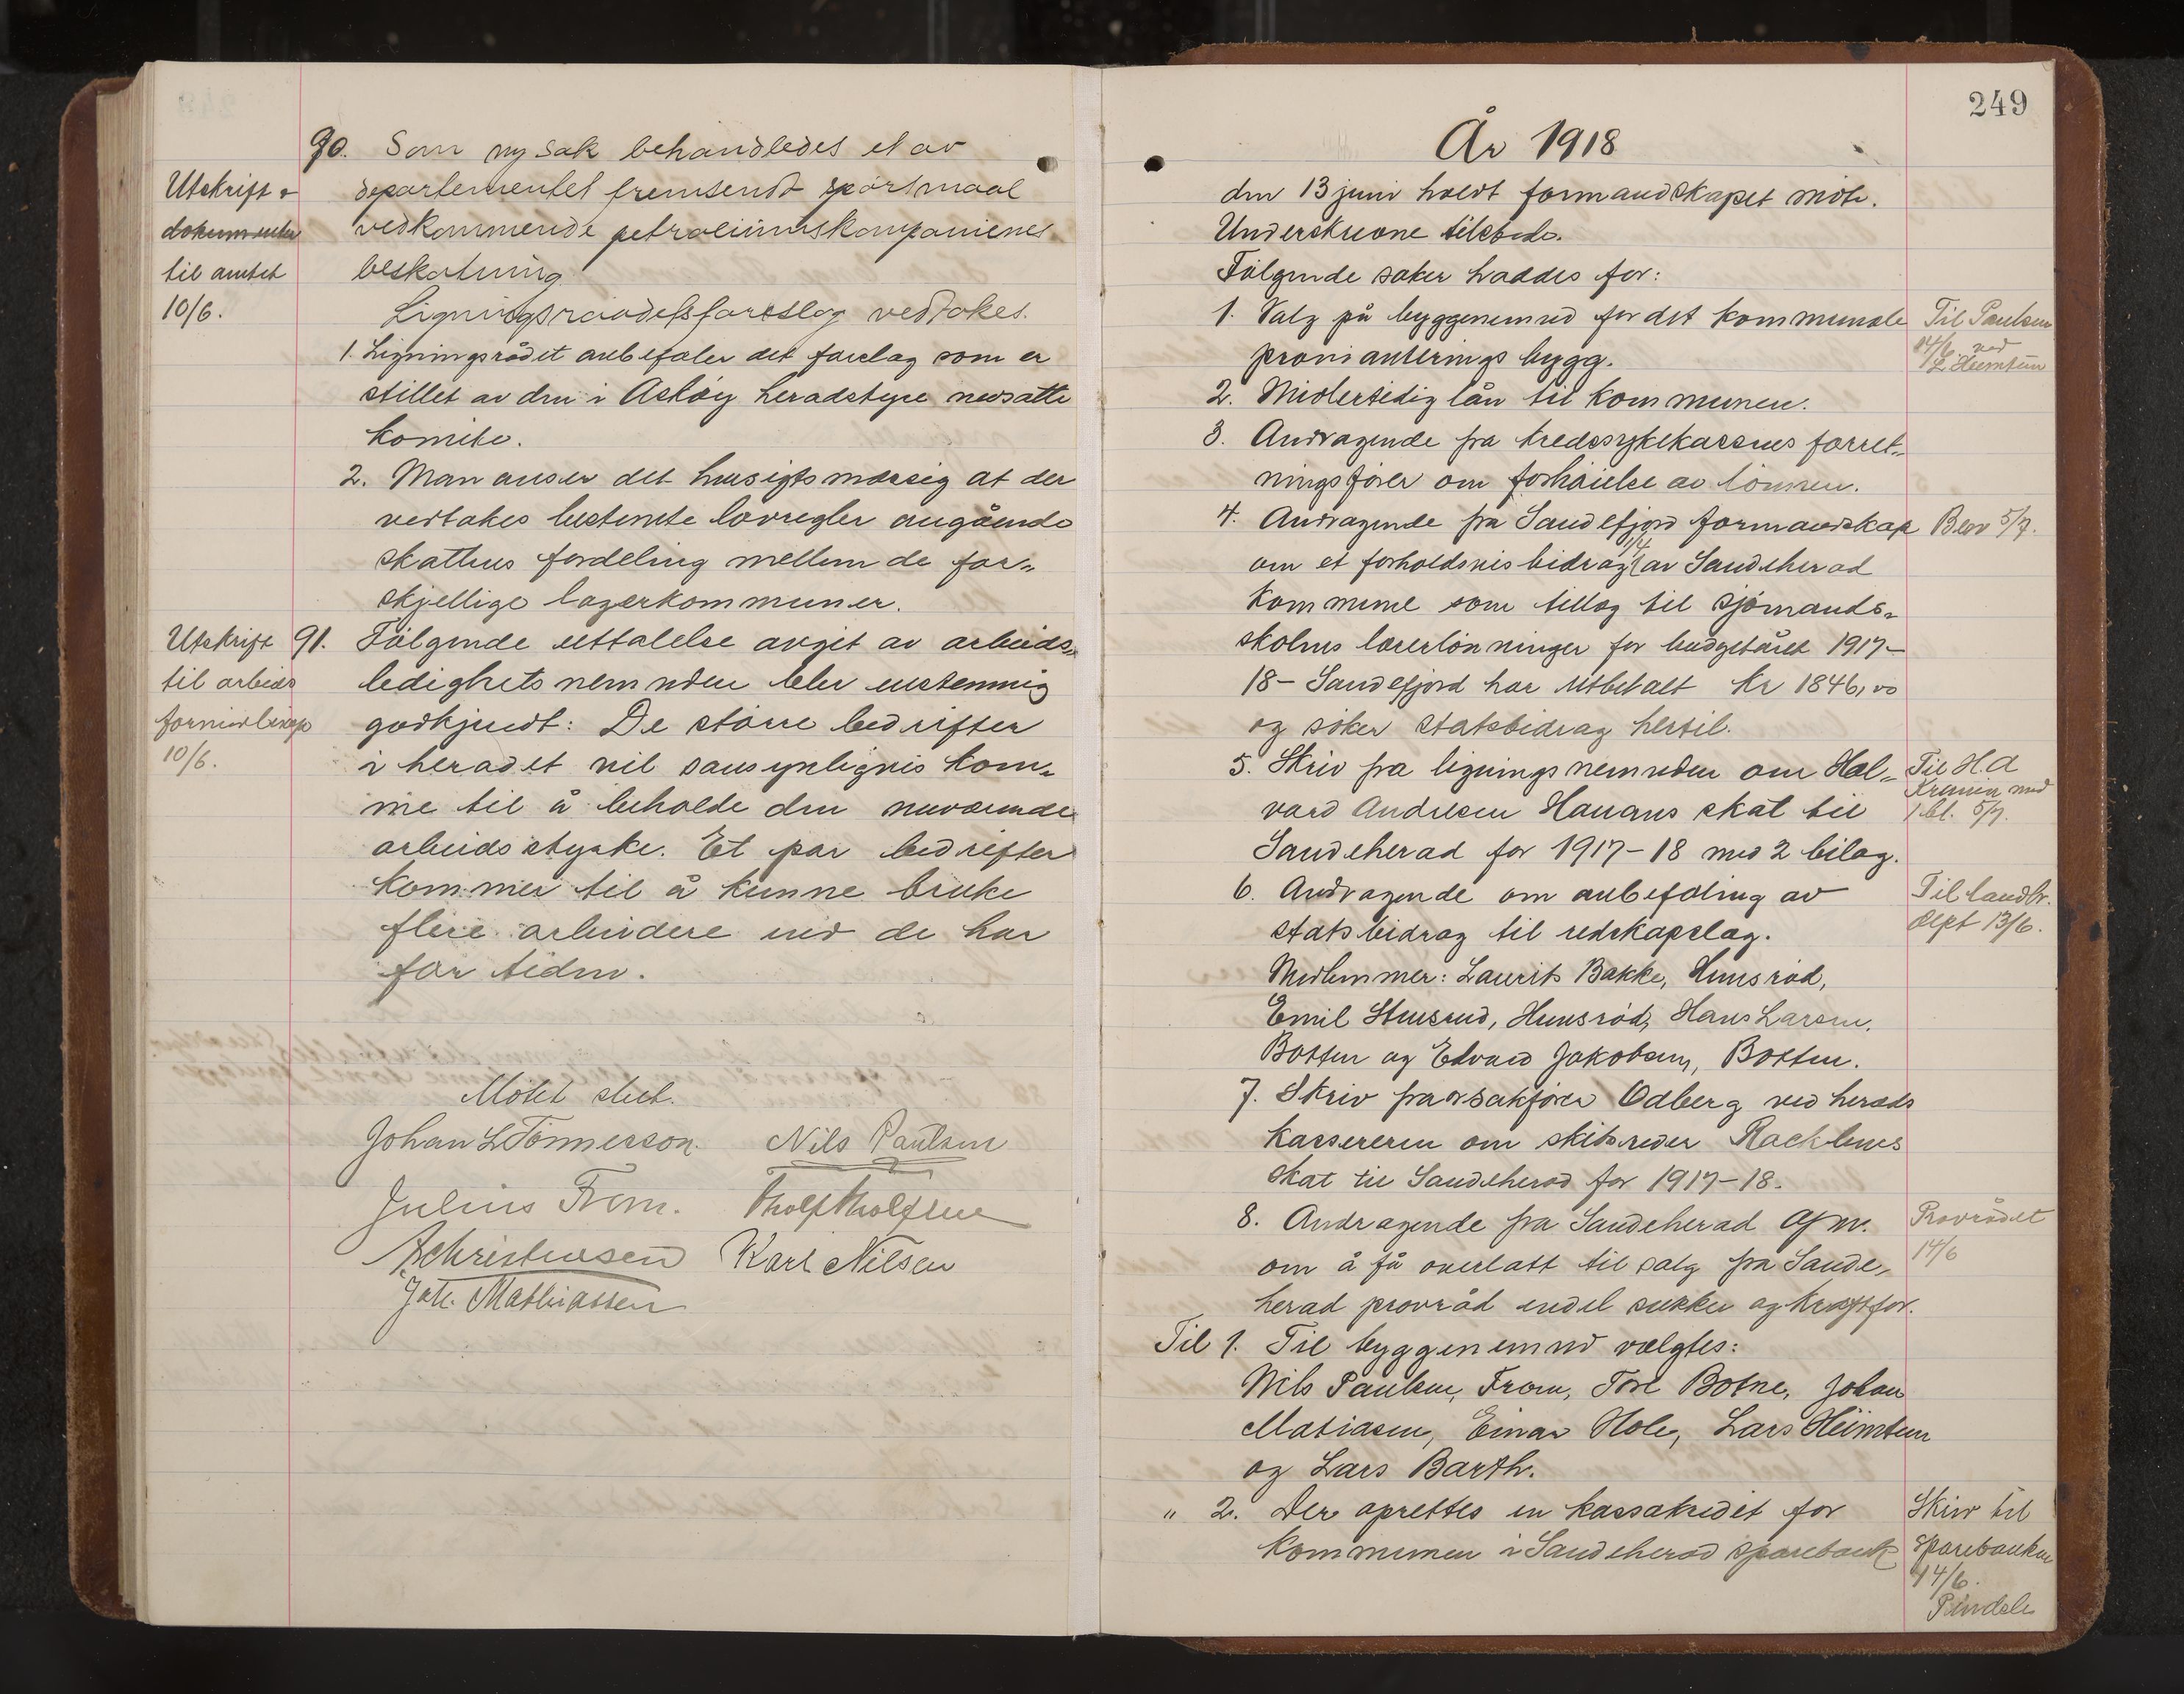 90. Som ny sak behandledes et av
Utskrift &
departementet fremsendt spørsmaal
dokumenter
vedkommende petroleumskompanienes
til amtet
beskatning
10/6.
Ligningsraadets forslag vedtokes.
1. Ligningsrådet anbefaler det forslag som er
stillet av den i Askøy heradstyre nedsatte
komite.
2. Man anser det hensigtsmæssig at der
vedtakes bestemte lovregler angående
skattens fordeling mellem de for-
skjellige lagerkommuner.
Utskrift 91. Følgende uttalelse avgit av arbeids-
til arbeids
ledighetsnemnden blev enstemmig
formidlingen
godkjendt: De større bedrifter
10/6.
i heradet vil sansynligvis kom-
me til å beholde den nuværende
arbeidsstyrke. Et par bedrifter
kommer til å kunne bruke
flere arbeidere end de har
for tiden.
Møtet slut.
Johan L Tønnesson. Nils Paulsen
Julius From. Tholf Tholfsen
A Christensen Karl Nilsen
Joh. Mathiassen
249
År 1918
den 13 juni holdt formandskapet møte.
Underskrevne tilstede.
Følgende saker haddes for:
1. Valg på byggenemnd for det kommunale
Til Paulsen
14/6 med
L. Heimtun
provianterings bygg.
2. Midlertidig lån til kommunen.
3. Andragende fra kredssykekassens forret-
ningsfører om forhøielse av lønnen.
4. Andragende fra Sandefjord formandskap
Besv 5/7.
om et forholdsvis bidrag 1/4 av Sandeherad
kommune som tillæg til sjømands-
skolens lærerlønninger for budgetåret 1917-
18- Sandefjord har utbetalt kr 1846,00
og søker statsbidrag hertil.
5. Skriv fra ligningsnemnden om Hal-
Til H.A
vard Andresen Hauans skat til
1 bl. 5/7.
Sandeherad for 1917-18 med 2 bilag.
6. Andragende om anbefaling av
Til landbr.
statsbidrag til redskapslag.
dept 13/6.
Medlemmer: Laurits Bakke, Hunsrød,
Emil Stensrud, Hunsrød, Hans Larsen,
Botten og Edvard Jakobsen, Botten.
7. Skriv fra o.r.sakfører Odberg ved herads
kassereren om skibsreder Rachlews
skat til Sandeherad for 1917-18.
8. Andragende fra Sandeherad Afm.
Provrådet
14/6
om å få overlatt til salg fra Sande-
herad provråd endel sukker og kraftfor.
Til 1. Til byggenemnd vælgtes:
Nils Paulsen, From, Tore Botne, Johan
Matiasen, Einar Hole, Lars Heimtun
og Lars Barth.
" 2. Der oprettes en kassakredit for
Skriv til
kommunen i Sandeherad sparebank
sparebanken
14/6.